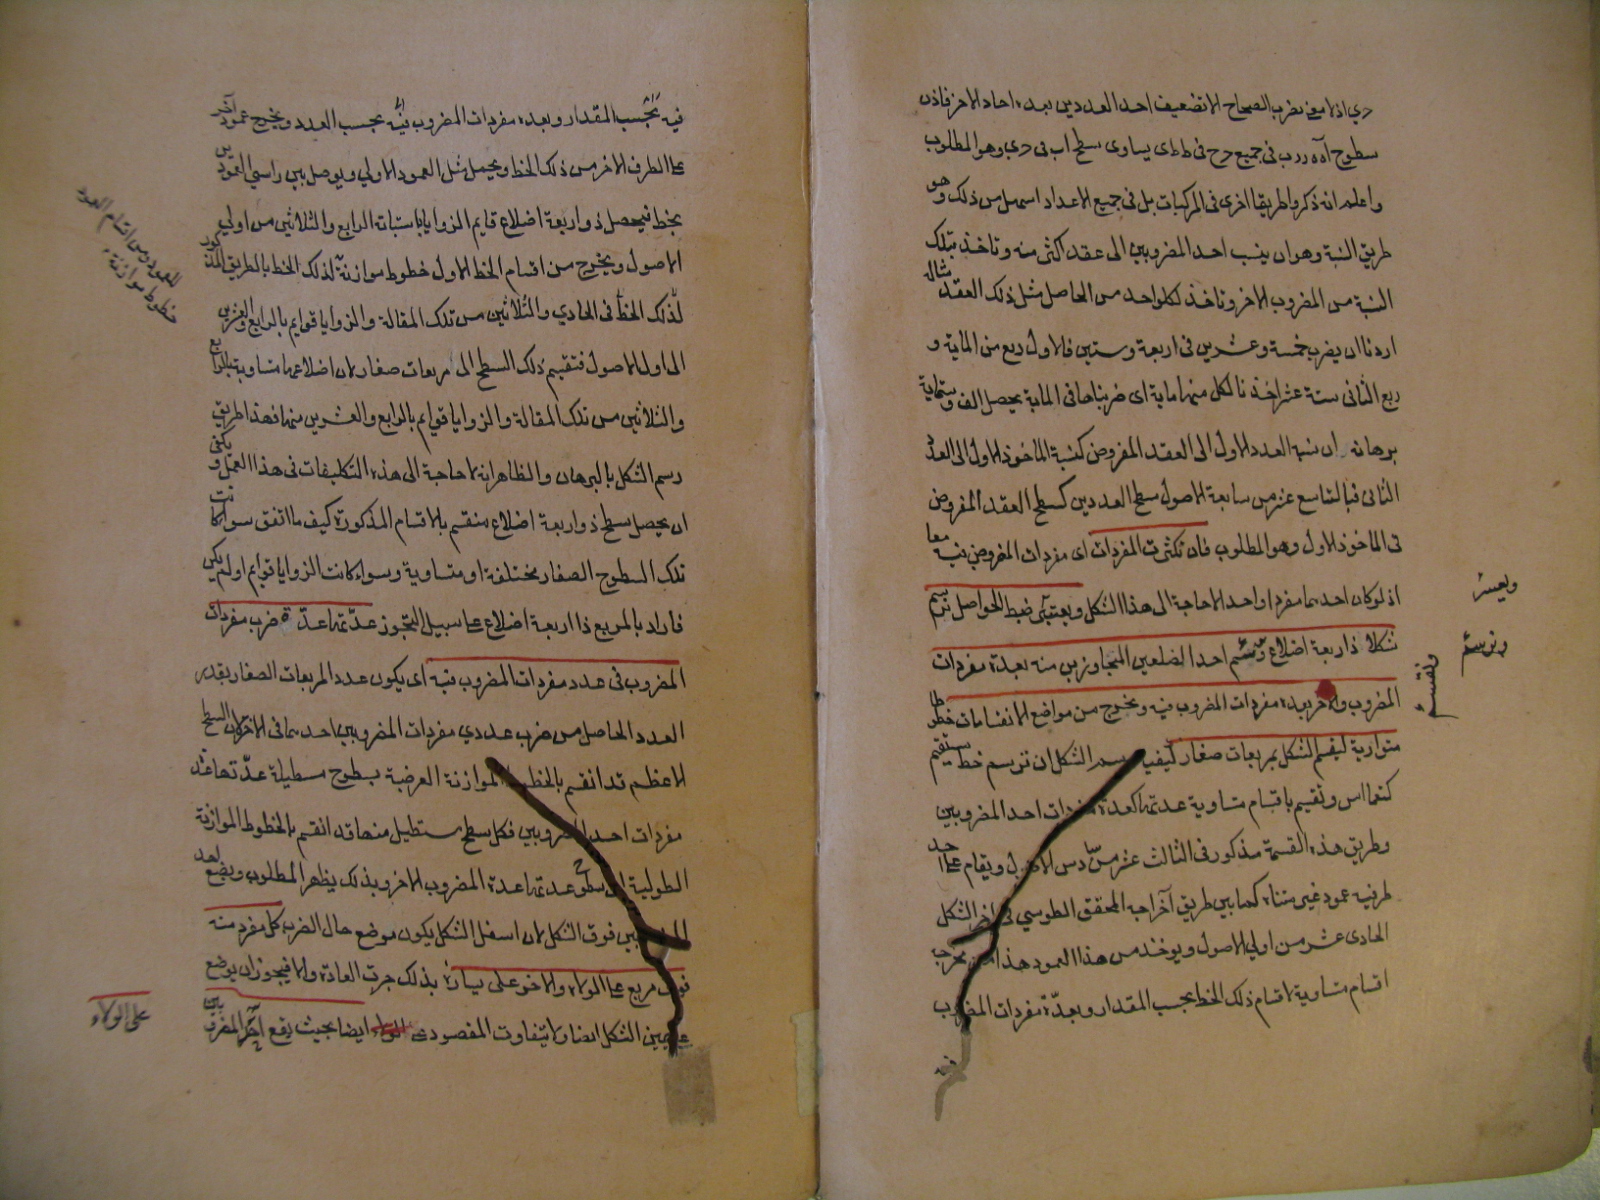 حرى اذ لا معنى لضرب الصحاح الا تضعيف احد العددين بعدة احاد الاخر فاذن
سطوح اه ه رب فى جميع رح فى طى يساوى سطح اب فى حرى وهو المطلوب
واعلم انه ذكروا طريقا اخرى فى المركبات بل فى جميع الاعداد اسهل من ذلك وهو
طريق النسبة وهو ان ينسب احد المضروبين الى عقد اكثر منه وتاخذ بتلك
النسبة من المضروب الاخر وتاخذ لكل واحد من الحاصل مثل ذلك العقد مثاله
اردنا ان يضرب خمسة وعشرين فى اربعة وستين فالاول ربع من الماية و
ربع الثانى ستة عشر اخذنا لكل منها ماية اى ضربناها فى الماية يحصل الف وستماية
برهانه ان نسبة العدد الاول الى العقد المفروض كنسبة الماخوذ الاول الى العدد
الثانى فبالتاسع عشر من سابعة الاصول سطح العددين كسطح العقد المفروض
فى الماخوذ الاول وهو المطلوب فان تكثرت المفردات اى مفردات المضروبين معا
اذ لو كان احدهما مفردا واحدا لا حاجة الى هذا الشكل ويعتبر ضبط الحواصل ترسم
شكلا ذا اربعة اضلاع وتقسم احد الضلعين المتجاورين منه بعدة مفردات
المضروب والاخر بعدة مفردات المضروب فيه وتخرج من مواضع الانقسامات خطوطا
متوازية ليقسم الشكل بمربعات صغار كيفية رسم الشكل ان ترسم خط مستقيم
كخط اس وتقسيم باقسام متساوية عدتها كعدة مفردات احد المضروبين
وطريق هذه القسمة مذكور فى الثالث عشر من سادس الاصول ويقام على احد
طرفيه عمود غير متناه كما بين طريق اخراجه المحقق الطوسي فى اخر الشكل
الحادى عشر من اولي الاصول ويوخذ من هذا العمود هذا بخرج
اقسام متساوية لاقسام ذلك الخط بحسب المقدار وبعدة مفردات المضروب
فيه
ويعسر
وترسم
وتقسم
فيه بحسب المقدار وبعدة مفردات المضروب فيه بحسب العدد ويخرج عمود آخر
على الطرف الاخر من ذلك الخط ويجعل مثل العمود الاولي ويوصل بين راسي العمودين
بخط فيحصل ذو اربعة اضلاع قايم الزوايا باستبانة الرابع والثلاثين من اولي
الاصول ويخرج من اقسام الخط الاول خطوط موازنة لذلك الخط بالطريق المذكور
لذلك الخط فى الحادي والثلاثين من تلك المقالة والزوايا قوايم بالرابع والعشرين
الى اولى الاصول فتقيم ذلك السطح الى مربعات صغار لان اضلاعها متساوية بالرابع
والثلاثين من تلك المقالة والزوايا قوايم بالرابع والعشرين منها فهذا طريق
رسم الشكل بالبرهان والظاهر انه لا حاجة الى هذه التكليفات فى هذا العمل ويكفى
ان يحصل سطح ذو اربعة اضلاع منقسم بالاقسام المذكورة كيف ما اتفق سواء كانت
تلك السطوح الصغار مختلفة او متساوية وسواء كانت الزوايا قوايم او لم يكن
فاراد بالمربع ذا اربعة اضلاع على سبيل التجوز عدتها عدة ضرب مفردات
المضروب فى عدد مفردات المضروب فيه اى يكون عدد المربعات الصغار بقدر
العدد الحاصل من ضرب عددي مفردات المضروبين احدهما فى الاخر لان السطح
الاعظم قد انقسم بالخطوط الموازنة العرضية بسطوح مستطيلة عدتها عدة
مفردات احد المضروبين فكل سطح مستطيل منها قد انقسم بالخطوط الموازنة
الطولية الى سطوح عدتها عدة المضروب الاخر وبذلك يظهر المطلوب ويضع احد
المضروبين فوق الشكل لان اسفل الشكل يكون موضع حال الضرب كل مفرد منه
فوق مربع على الولاء والاخر على يساره بذلك جرت العادة والا فيجوز ان يوضع
على يمين الشكل ايضا ولا يتفاوت المقصود على الولاء ايضا بحيث يقع آخر المضروبين
للعمود من اقسام العمود
خطوط موازنة
على الولاء